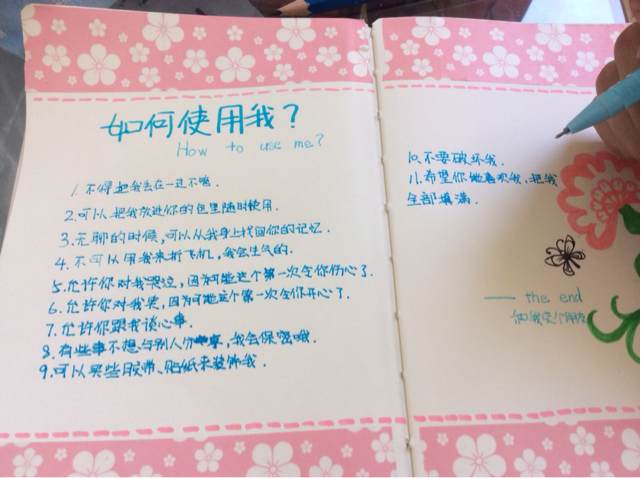 如何使用我？
How to use me?
1. 不得把我丢在一边不嘻.
2. 可以把我放进你的包里随时使用.
3. 无聊的时候,可以从我身上找回你的记忆.
4. 不可以用我来折飞机,我会生气的.
5. 允许你对我哭泣,因为可能这个第一次令你伤心了.
6. 允许你对我笑,因为可能这个第一次令你开心了.
7. 允许你跟我谈心事.
8. 有些事不想与别人分享,我会保密哦.
9. 可以买些胶带、贴纸来装饰我.
10. 不要破坏我.
11. 希望你她喜欢我,把我
全部填满.
—— the end